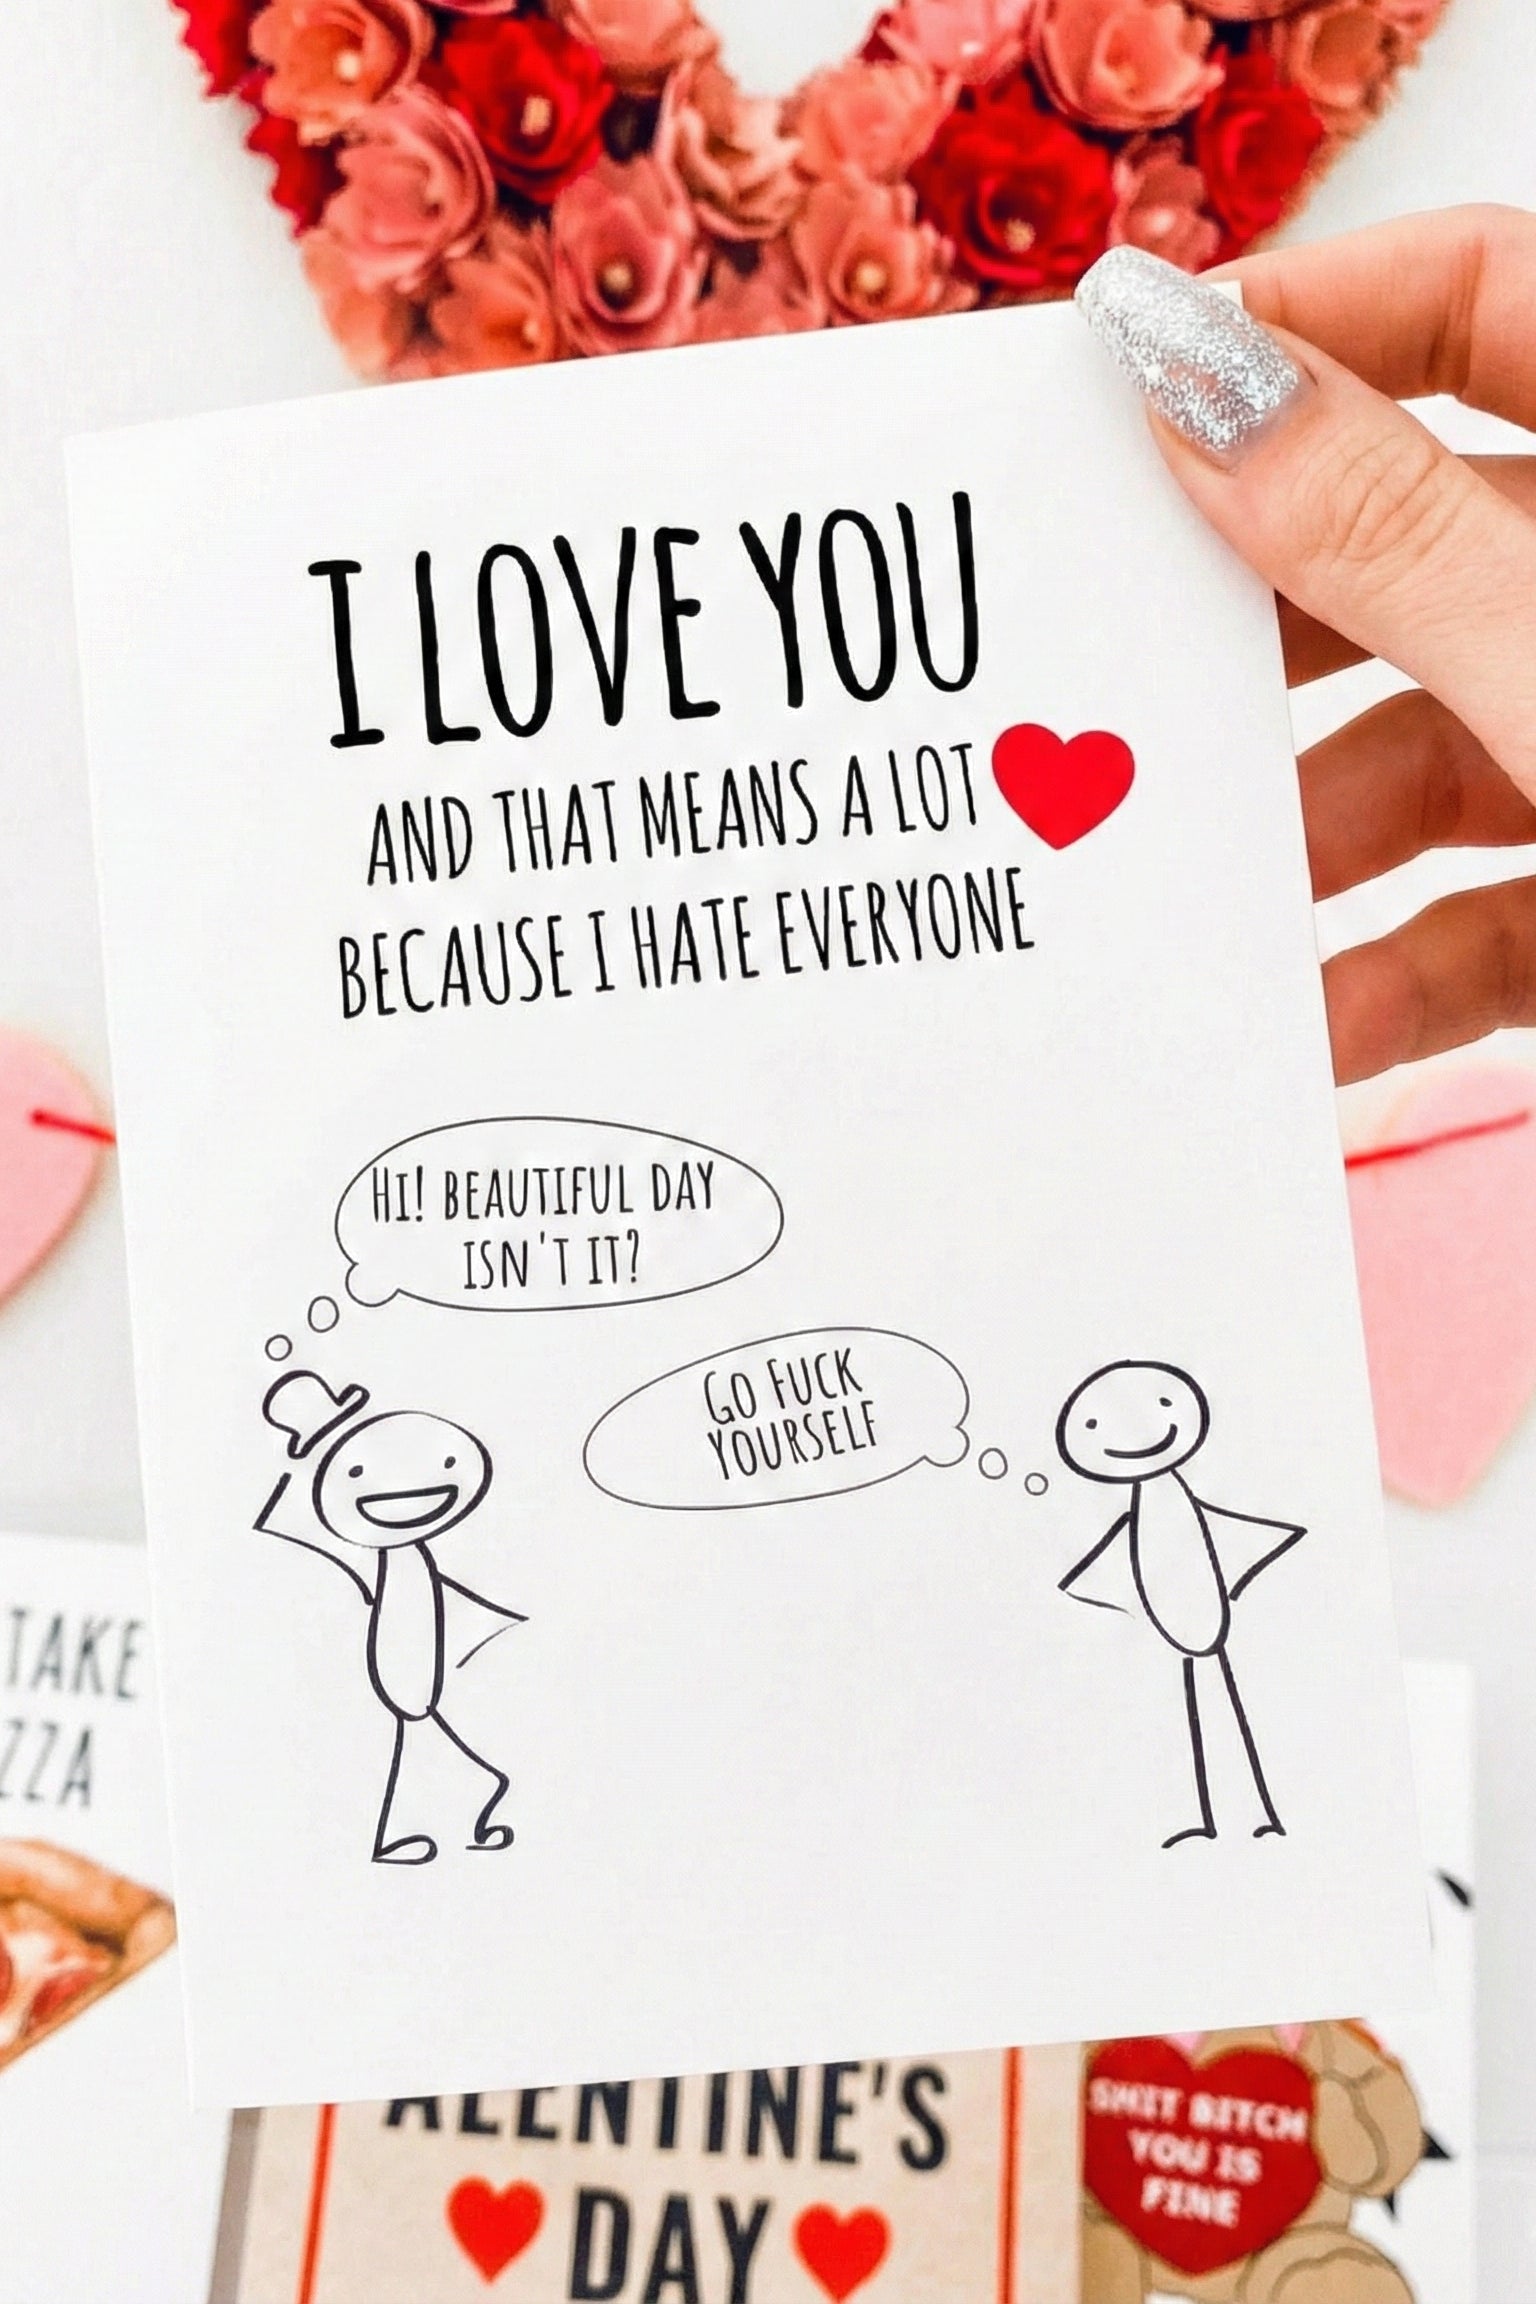 I LOVE YOU
AND THAT MEANS A LOT
BECAUSE I HATE EVERYONE
HI! BEAUTIFUL DAY
ISN'T IT?
GO FUCK
YOURSELF
TAKE
ZZA
ALENTINE'S
DAY
SHIT BITCH
YOU IS
FINE